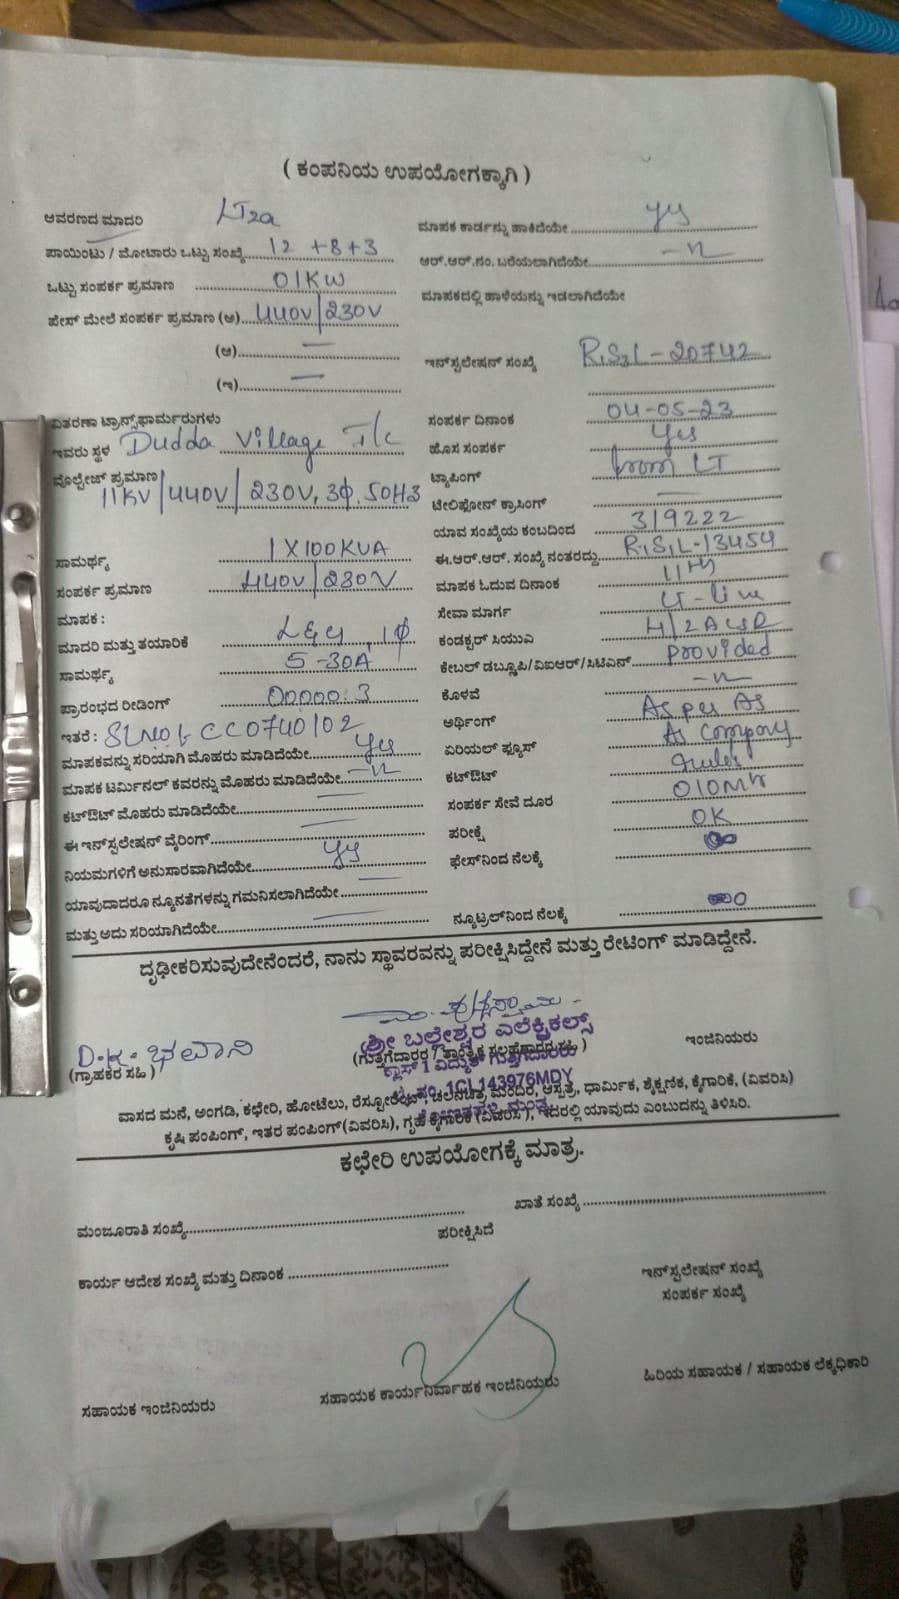 ( ಕಂಪನಿಯ ಉಪಯೋಗಕ್ಕಾಗಿ )
ಆವರಣದ ಮಾದರಿ LT2a
ಪಾಯಿಂಟು / ಮೋಟಾರು ಒಟ್ಟು ಸಂಖ್ಯೆ 12 +8+3
ಒಟ್ಟು ಸಂಪರ್ಕ ಪ್ರಮಾಣ 01KW
ಫೇಸ್ ಮೇಲೆ ಸಂಪರ್ಕ ಪ್ರಮಾಣ (ಅ) 440V/230V
(ಆ) —
(ಇ) —
ವಿತರಣಾ ಟ್ರಾನ್ಸ್‌ಫಾರ್ಮರುಗಳು
ಇವರು ಸ್ಥಳ Dudda Village T/C
ವೋಲ್ಟೇಜ್ ಪ್ರಮಾಣ
11KV/440V/230V, 3φ, 50HZ
ಸಾಮರ್ಥ್ಯ 1X100KVA
ಸಂಪರ್ಕ ಪ್ರಮಾಣ 440V/230V
ಮಾಪಕ :
ಮಾದರಿ ಮತ್ತು ತಯಾರಿಕೆ L&G, 1φ
ಸಾಮರ್ಥ್ಯ 5-30A
ಪ್ರಾರಂಭದ ರೀಡಿಂಗ್ 00000:3
ಇತರೆ : CC0740102
ಮಾಪಕವನ್ನು ಸರಿಯಾಗಿ ಮೊಹರು ಮಾಡಿದೆಯೇ yes
ಮಾಪಕ ಟರ್ಮಿನಲ್ ಕವರನ್ನು ಮೊಹರು ಮಾಡಿದೆಯೇ -n-
ಕಟ್‌ಔಟ್ ಮೊಹರು ಮಾಡಿದೆಯೇ —
ಈ ಇನ್‌ಸ್ಟಲೇಷನ್ ವೈರಿಂಗ್ —
ನಿಯಮಗಳಿಗೆ ಅನುಸಾರವಾಗಿದೆಯೇ yes
ಯಾವುದಾದರೂ ನ್ಯೂನತೆಗಳನ್ನು ಗಮನಿಸಲಾಗಿದೆಯೇ —
ಮತ್ತು ಅದು ಸರಿಯಾಗಿದೆಯೇ —
ಮಾಪಕ ಕಾರ್ಡನ್ನು ಹಾಕಿದೆಯೇ yes
ಆರ್.ಆರ್.ನಂ. ಬರೆಯಲಾಗಿದೆಯೇ -n-
ಮಾಪಕದಲ್ಲಿ ಹಾಳೆಯನ್ನು ಇಡಲಾಗಿದೆಯೇ
ಇನ್‌ಸ್ಟಲೇಷನ್ ಸಂಖ್ಯೆ R1S3L-20742
ಸಂಪರ್ಕ ದಿನಾಂಕ 04-05-23
ಹೊಸ ಸಂಪರ್ಕ Yes
ಟ್ಯಾಪಿಂಗ್ from LT
ಟೆಲಿಫೋನ್ ಕ್ರಾಸಿಂಗ್ —
ಯಾವ ಸಂಖ್ಯೆಯ ಕಂಬದಿಂದ 319222
ಈ.ಆರ್.ಆರ್. ಸಂಖ್ಯೆ ನಂತರದ್ದು R1S1L-13454
ಮಾಪಕ ಓದುವ ದಿನಾಂಕ 11th
ಸೇವಾ ಮಾರ್ಗ LT-line
ಕಂಡಕ್ಟರ್ ಸಿಯುಎ
ಕೇಬಲ್ ಡಬ್ಲ್ಯೂಪಿ/ವಿಐಆರ್/ಸಿಟಿಎಸ್ provided
ಕೊಳವೆ -n-
ಅರ್ಥಿಂಗ್ As per AS
ಏರಿಯಲ್ ಫ್ಯೂಸ್ As company
ಕಟ್‌ಔಟ್ rules
ಸಂಪರ್ಕ ಸೇವೆ ದೂರ 010Mtr
ಪರೀಕ್ಷೆ OK
ಫೇಸ್‌ನಿಂದ ನೆಲಕ್ಕೆ
ನ್ಯೂಟ್ರಲ್‌ನಿಂದ ನೆಲಕ್ಕೆ
ದೃಢೀಕರಿಸುವುದೇನೆಂದರೆ, ನಾನು ಸ್ಥಾವರವನ್ನು ಪರೀಕ್ಷಿಸಿದ್ದೇನೆ ಮತ್ತು ರೇಟಿಂಗ್ ಮಾಡಿದ್ದೇನೆ.
D.K. ಭವಾನಿ
(ಗ್ರಾಹಕರ ಸಹಿ )
ಶ್ರೀ ಬಲ್ಲೇಶ್ವರ ಎಲೆಕ್ಟ್ರಿಕಲ್ಸ್
(ಗುತ್ತಿಗೆದಾರರ / ತಾಂತ್ರಿಕ ಸಲಹೆಗಾರರ ಸಹಿ )
ಕ್ಲಾಸ್ 1 ವಿದ್ಯುತ್ ಗುತ್ತಿಗೆದಾರರು
1CL143976MDY
ಇಂಜಿನಿಯರು
ವಾಸದ ಮನೆ, ಅಂಗಡಿ, ಕಛೇರಿ, ಹೋಟೆಲು, ರೆಸ್ಟೋರೆಂಟ್, ಚಲನಚಿತ್ರ ಮಂದಿರ, ಆಸ್ಪತ್ರೆ, ಧಾರ್ಮಿಕ, ಶೈಕ್ಷಣಿಕ, ಕೈಗಾರಿಕೆ, (ವಿವರಿಸಿ)
ಕೃಷಿ ಪಂಪಿಂಗ್, ಇತರ ಪಂಪಿಂಗ್(ವಿವರಿಸಿ), ಗೃಹ ಕೈಗಾರಿಕೆ (ವಿವರಿಸಿ ), ಇದರಲ್ಲಿ ಯಾವುದು ಎಂಬುದನ್ನು ತಿಳಿಸಿರಿ.
ಕಛೇರಿ ಉಪಯೋಗಕ್ಕೆ ಮಾತ್ರ.
ಮಂಜೂರಾತಿ ಸಂಖ್ಯೆ
ಖಾತೆ ಸಂಖ್ಯೆ
ಪರೀಕ್ಷಿಸಿದೆ
ಕಾರ್ಯ ಆದೇಶ ಸಂಖ್ಯೆ ಮತ್ತು ದಿನಾಂಕ
ಇನ್‌ಸ್ಟಲೇಷನ್ ಸಂಖ್ಯೆ
ಸಂಪರ್ಕ ಸಂಖ್ಯೆ
ಸಹಾಯಕ ಇಂಜಿನಿಯರು
ಸಹಾಯಕ ಕಾರ್ಯನಿರ್ವಾಹಕ ಇಂಜಿನಿಯರು
ಹಿರಿಯ ಸಹಾಯಕ / ಸಹಾಯಕ ಲೆಕ್ಕಧಿಕಾರಿ